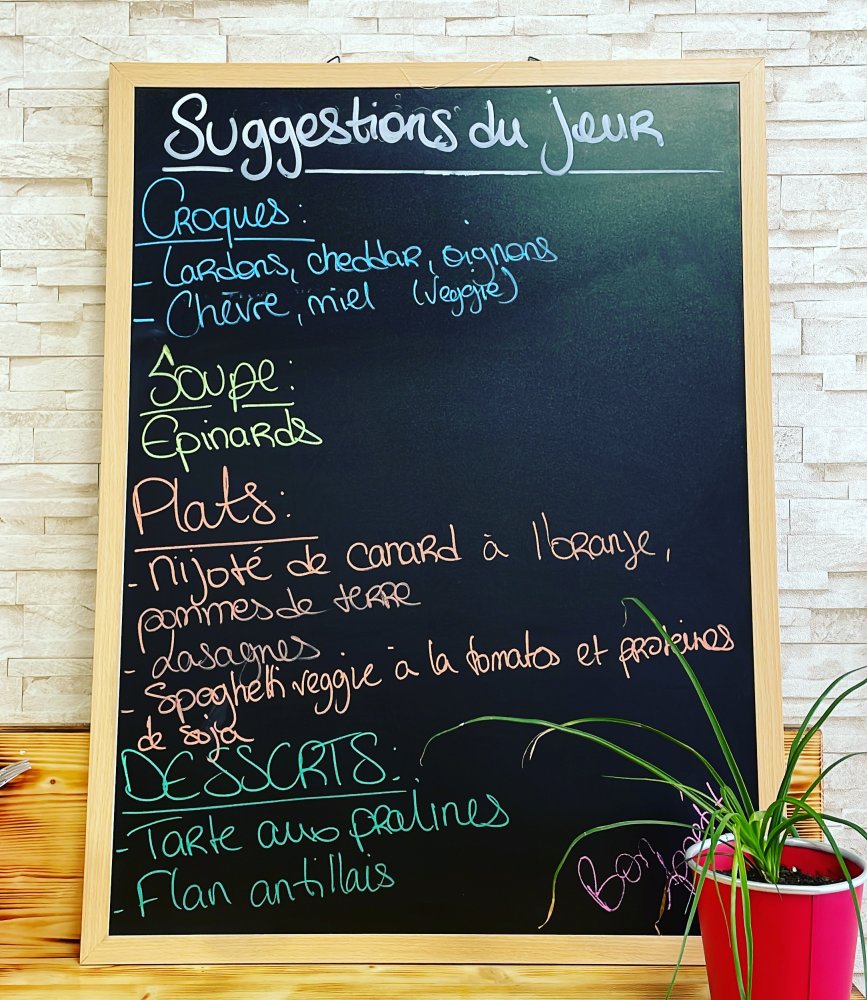 Suggestions du jour
Croques:
- Lardons, cheddar, oignons
- Chèvre, miel (veggie)
Soupe:
Epinards
Plats:
- Mijoté de canard à l'orange,
pommes de terre
- Lasagnes
- Spaghetti veggie à la tomatos et protéines
de soja
DESSERTS:
- Tarte aux pralines
- Flan antillais
Bon
Appétit